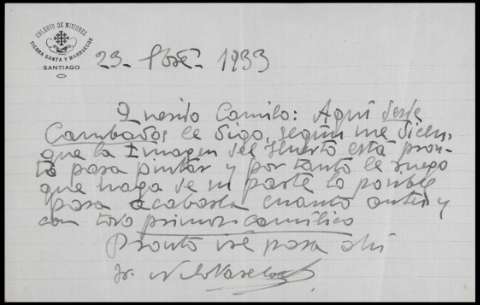 COLEGIO DE MISIONES
TIERRA SANTA Y MARRUECOS
SANTIAGO
23 - 1933
Querido Camilo: Aquí desde
Cambados le digo, según me dicen,
que la Imagen del Huerto está pron-
ta para pintar y por tanto le ruego
que haga de su parte lo posible
para acabarla cuanto antes y
con todo primor camílico
Pronto iré para ahí
Fr.